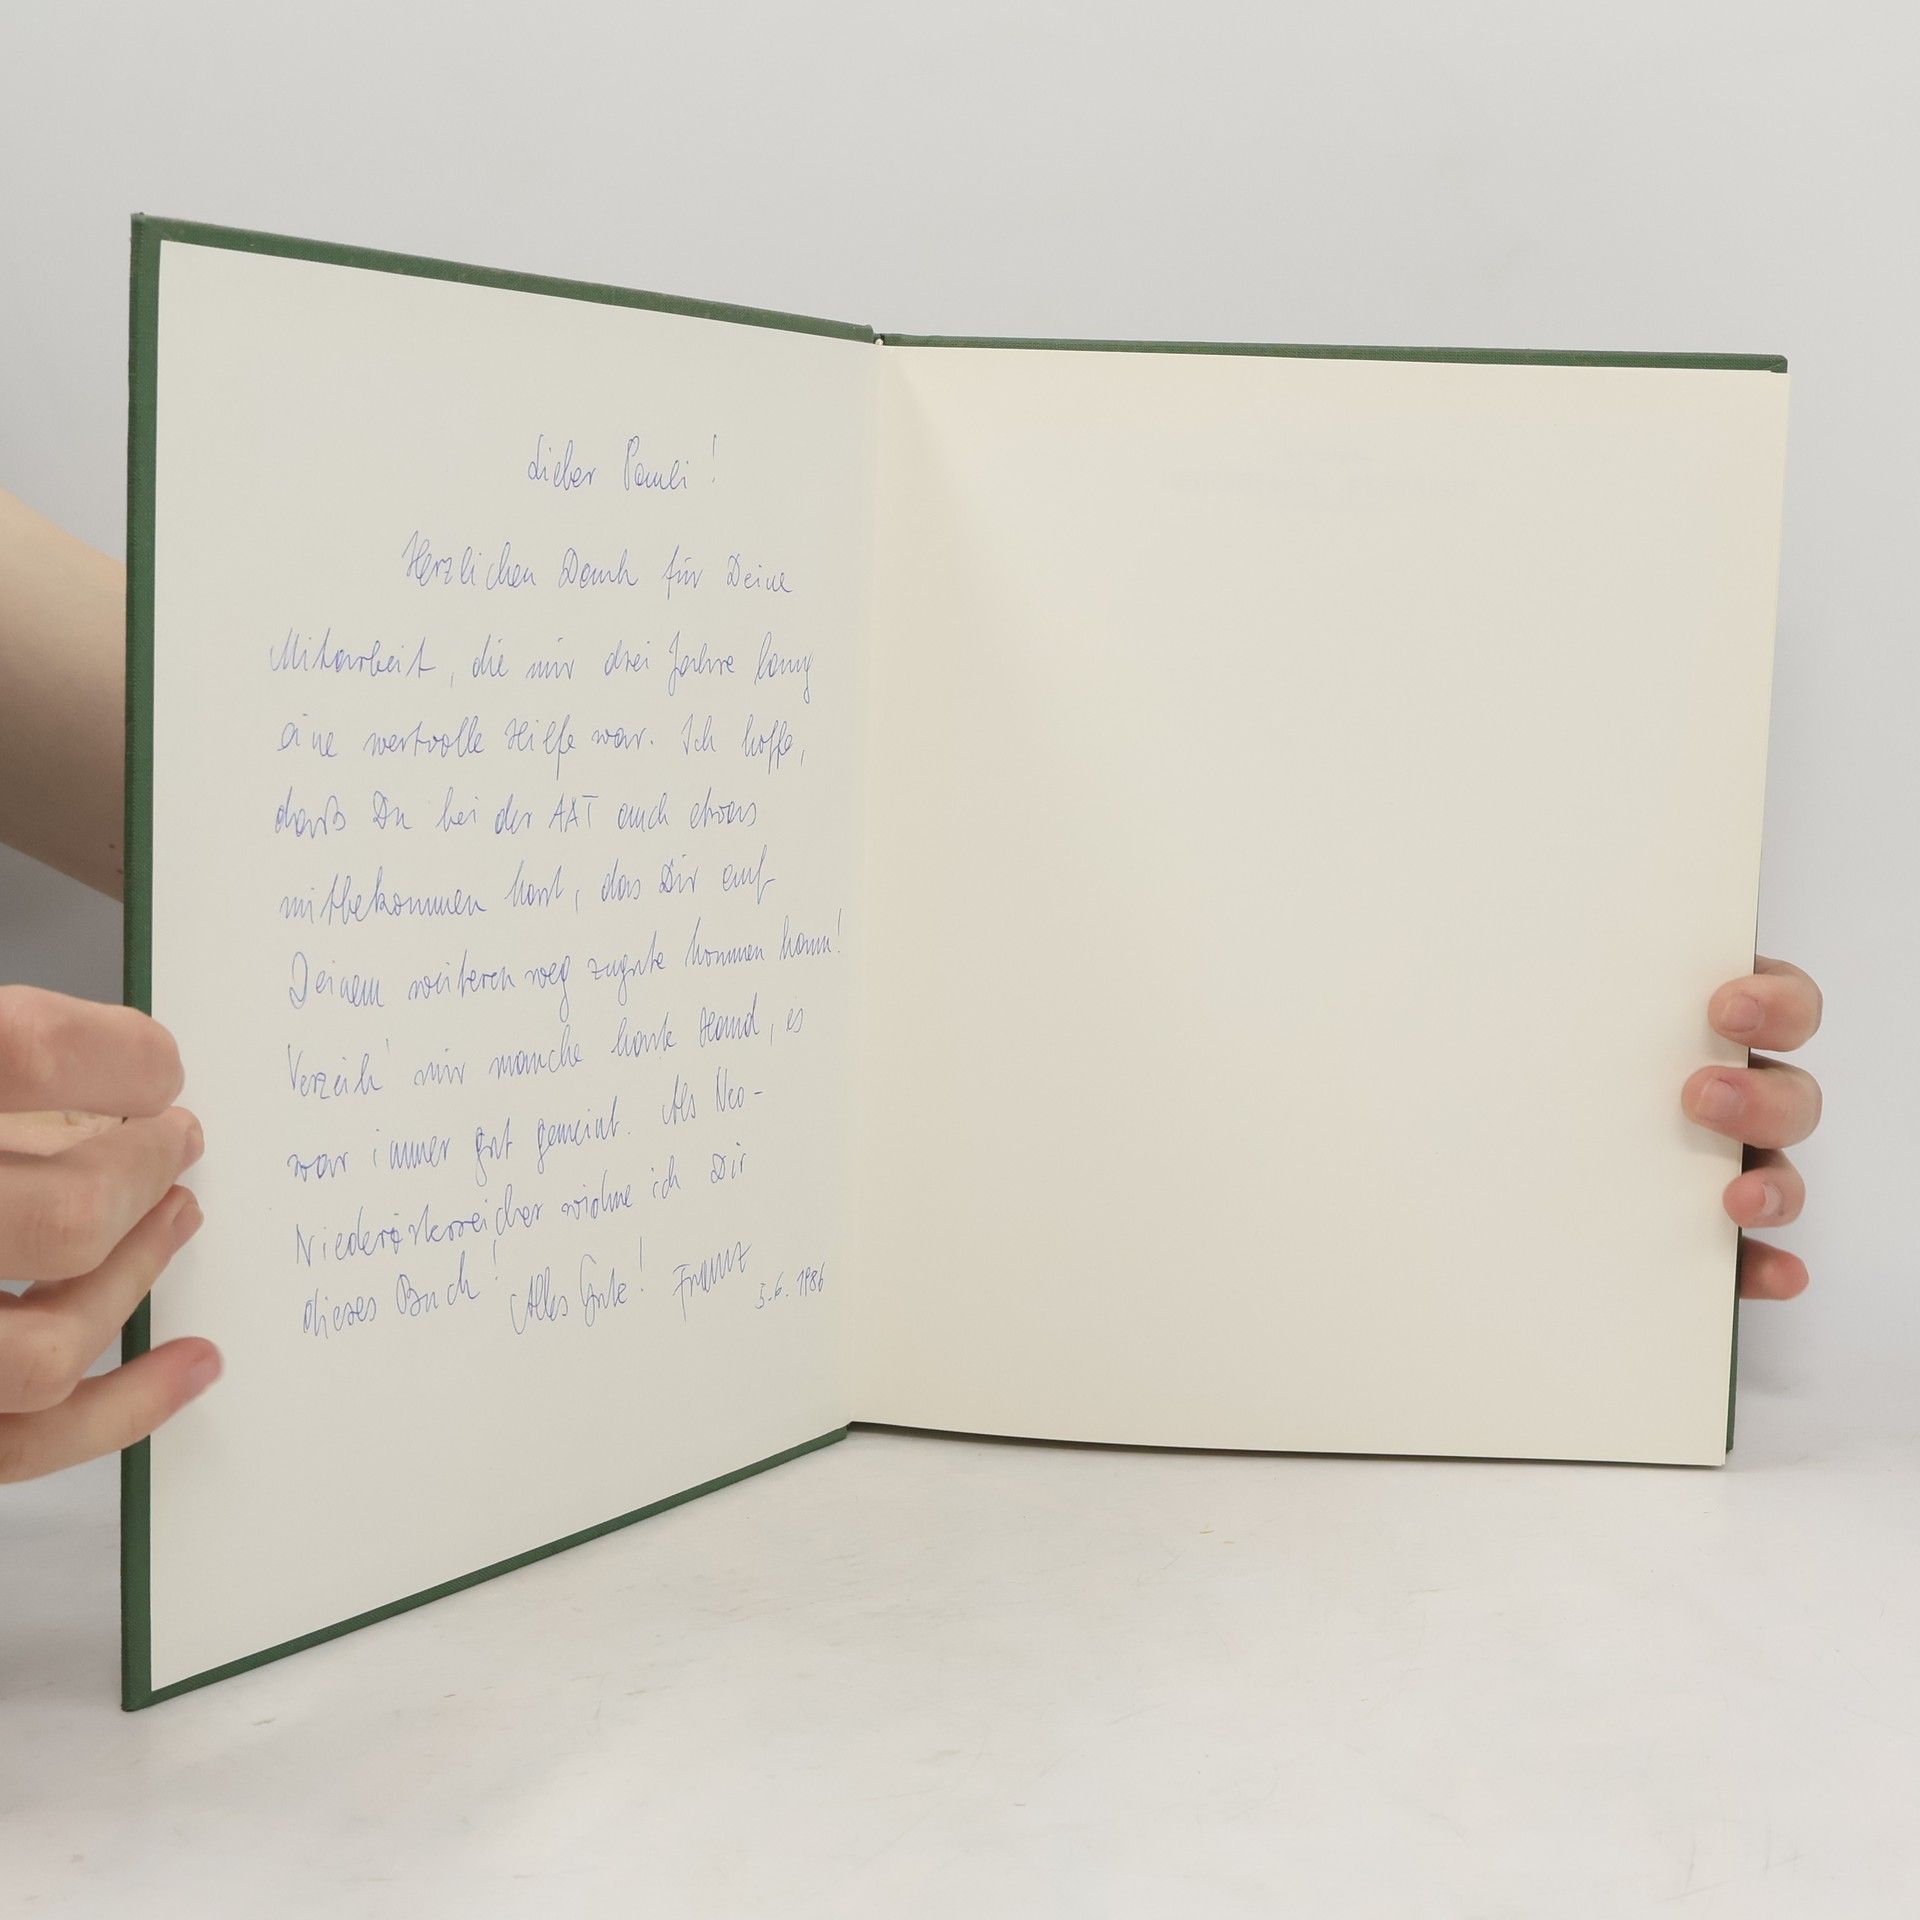 Lieber Pauli!
Herzlichen Dank für Deine
Mitarbeit, die mir drei Jahre lang
eine wertvolle Hilfe war. Ich hoffe,
daß Du bei der AAT auch etwas
mitbekommen hast, das Dir auf
Deinem weiteren Weg zugute kommen kann!
Verzeih' mir manche harte Hand, es
war immer gut gemeint. Als Neo-
Niederösterreicher widme ich Dir
dieses Buch! Alles Gute! Franz 5.6.1986